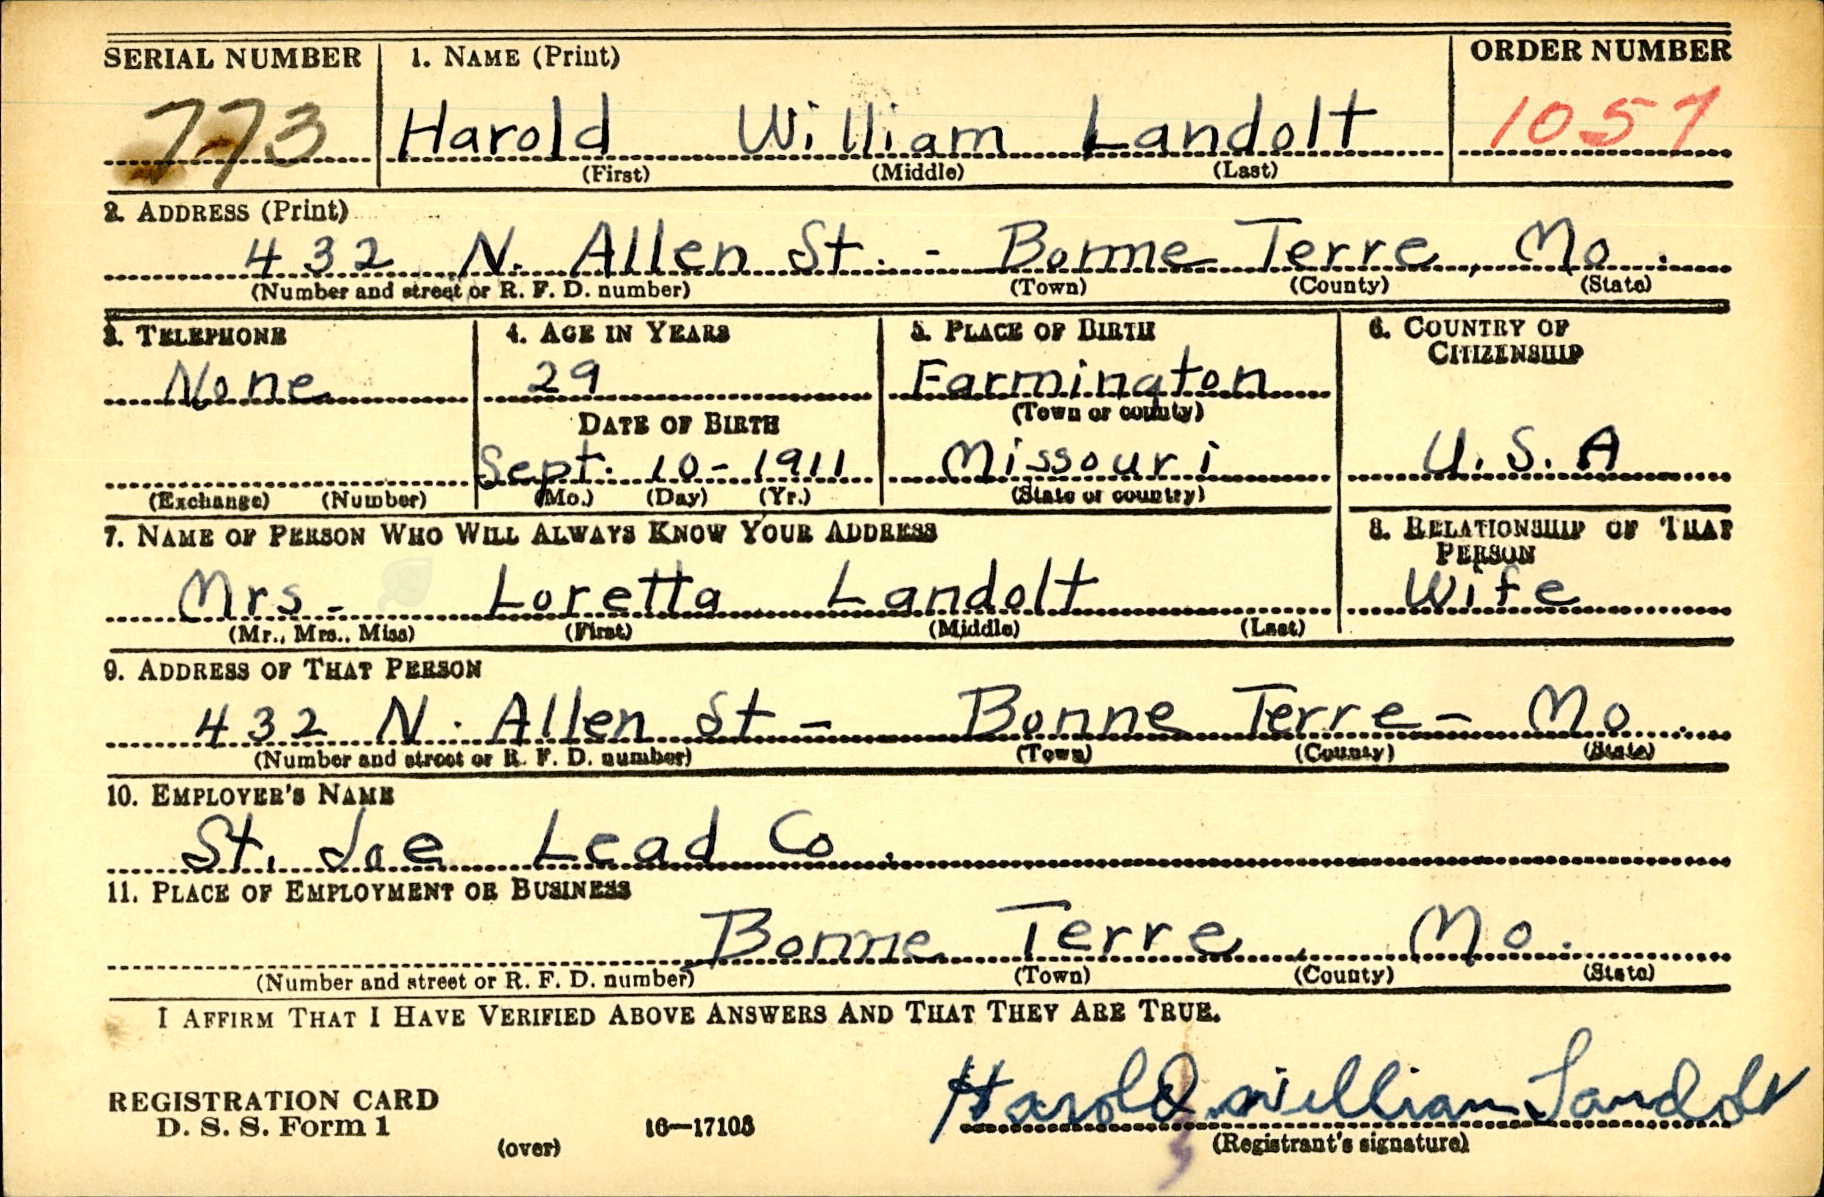 SERIAL NUMBER 1. NAME (Print) ORDER NUMBER
773 Harold William Landolt 1057
(First) (Middle) (Last)
2. ADDRESS (Print)
432 N. Allen St. - Bonne Terre, Mo.
(Number and street or R. F. D. number) (Town) (County) (State)
3. TELEPHONE 4. AGE IN YEARS 5. PLACE OF BIRTH 6. COUNTRY OF CITIZENSHIP
None 29 Farmington
(Town or county)
DATE OF BIRTH
Sept. 10-1911 Missouri U.S.A
(Exchange) (Number) (Mo.) (Day) (Yr.) (State or country)
7. NAME OF PERSON WHO WILL ALWAYS KNOW YOUR ADDRESS 8. RELATIONSHIP OF THAT PERSON
Mrs- Loretta Landolt Wife
(Mr., Mrs., Miss) (First) (Middle) (Last)
9. ADDRESS OF THAT PERSON
432 N. Allen St - Bonne Terre - Mo.
(Number and street or R. F. D. number) (Town) (County) (State)
10. EMPLOYER'S NAME
St. Joe Lead Co.
11. PLACE OF EMPLOYMENT OR BUSINESS
Bonne Terre, Mo.
(Number and street or R. F. D. number) (Town) (County) (State)
I AFFIRM THAT I HAVE VERIFIED ABOVE ANSWERS AND THAT THEY ARE TRUE.
Harold William Landolt
REGISTRATION CARD
D. S. S. Form 1 (over) 16-17105 (Registrant's signature)